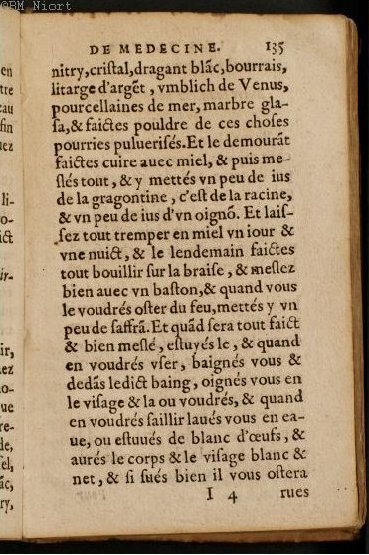 ©BM Niort
DE MEDECINE. 135
nitry,cristal,dragant blãc,bourrais,
litarge d'argẽt, vmblich de Venus,
pourcellaines de mer, marbre gla-
sa,& faictes pouldre de ces choses
pourries puluerisés.Et le demourãt
faictes cuire auec miel, & puis me-
slés tout, & y mettés vn peu de ius
de la gragontine, c'est de la racine,
& vn peu de ius d'vn oignõ. Et lais-
sez tout tremper en miel vn iour &
vne nuict, & le lendemain faictes
tout bouillir sur la braise, & meslez
bien auec vn baston,& quand vous
le voudrés oster du feu,mettés y vn
peu de saffrã.Et quãd sera tout faict
& bien meslé, estuyés le, & quand
en voudrés vser, baignés vous &
dedãs ledict baing, oignés vous en
le visage & la ou voudrés, & quand
en voudrés saillir laués vous en ea-
ue, ou estuués de blanc d'œufs, &
aurés le corps & le visage blanc &
net, & si sués bien il vous ostera
I 4 rues
en
tre
eau
fin
uez
li-
o-
ict
ir-
ir,
ez
no-
ue
re-
de,
sel,
ãc,
ry,